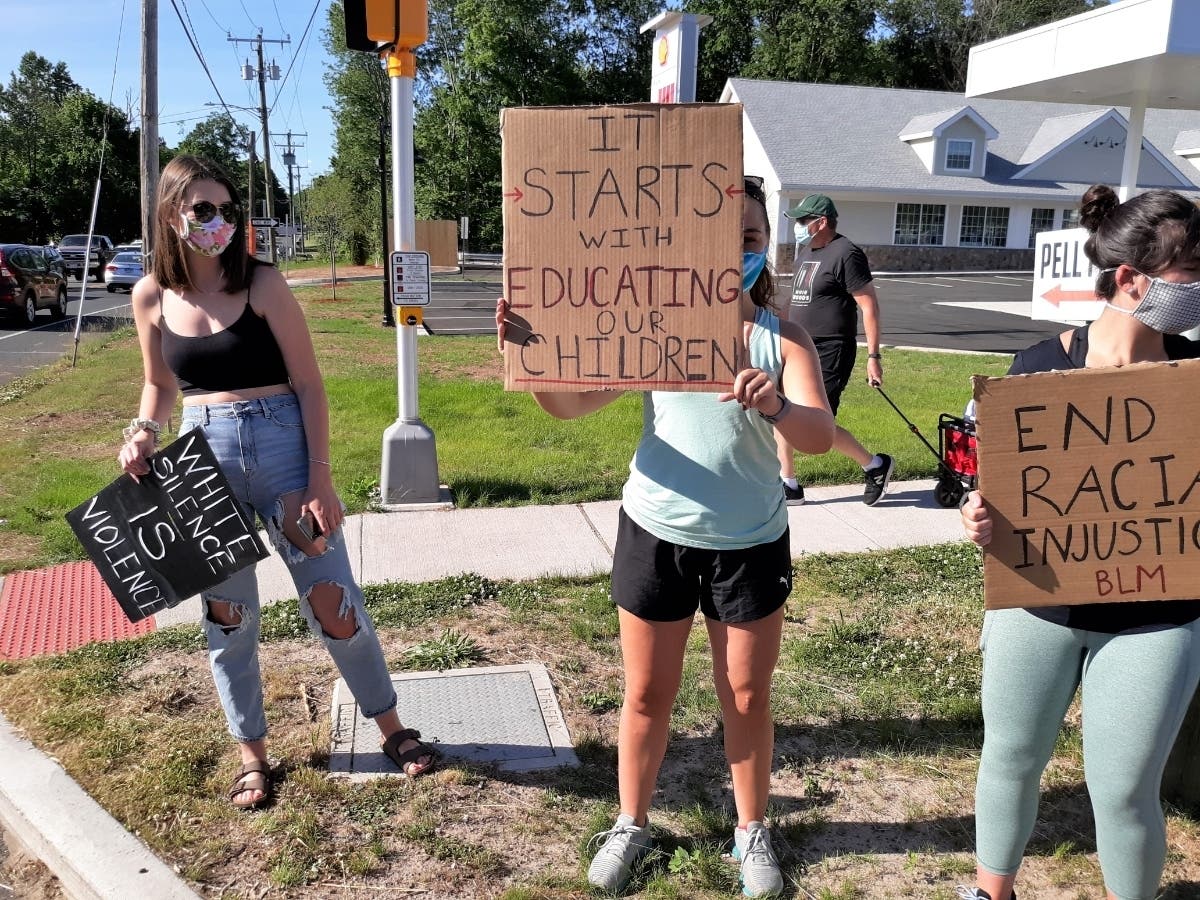 IT
STARTS
WITH
EDUCATING
OUR
CHILDREN
WHITE
SILENCE
IS
VIOLENCE
END
RACIA
INJUSTIC
BLM
PELL